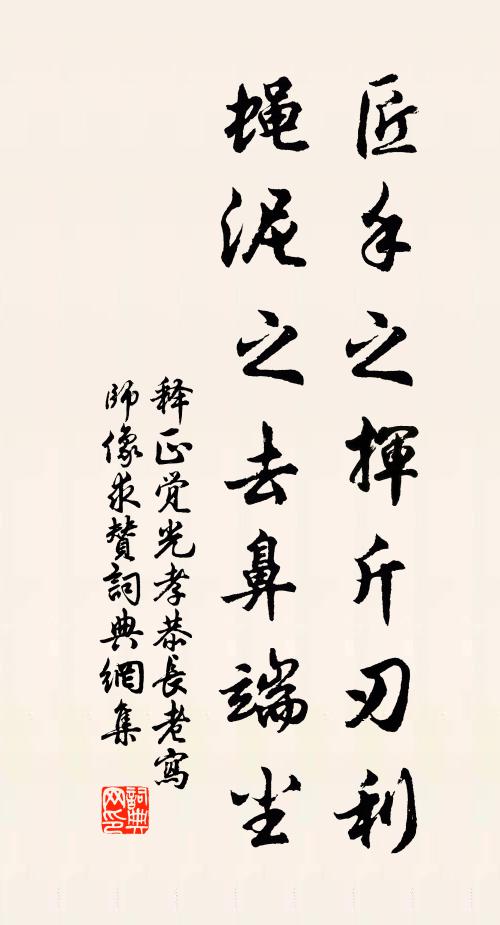 匠手之揮斤刃利
蝇泥之去鼻端尘
释正觉光孝恭長老寫
師像求贊詞典網集
詞典
网印